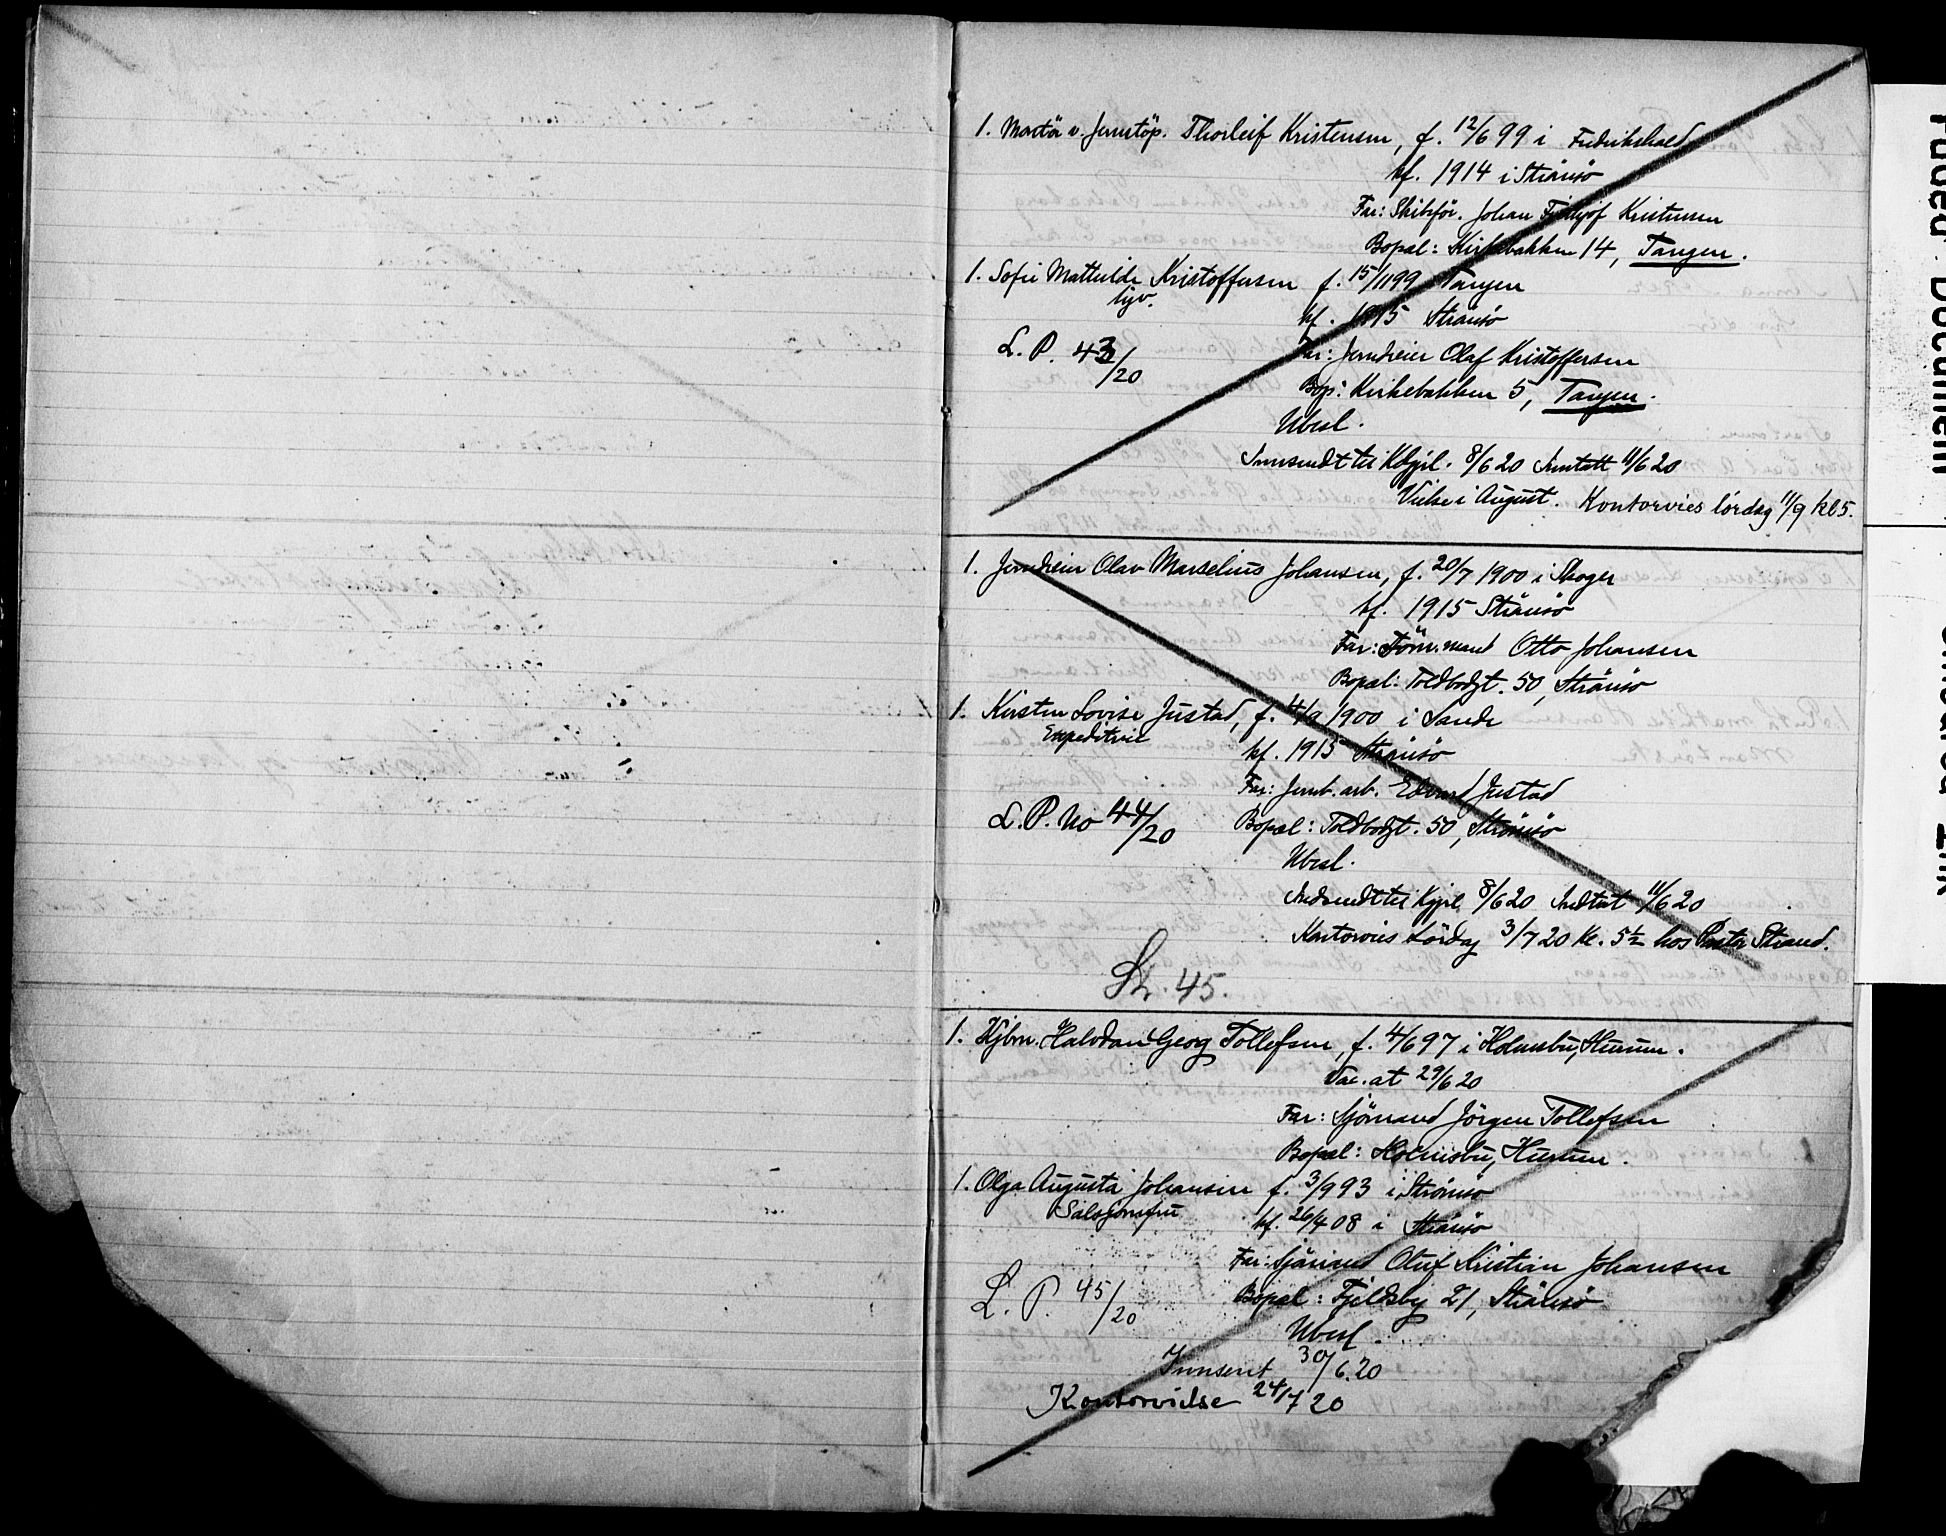 1. Mastör v. Jernstöp. Thorleif Kristensen, f. 12/6 99 i Fredrikshald
kf. 1914 i Strömsö
Far: Skibsför. Johan Fridtjof Kristensen
Bopæl: Kirkebakken 14, Tangen.
1. Sofie Mathilde Kristoffersen f. 15/11 99 Tangen
syv.
kf. 1915 Strömsö
L. P. 43/20
Far: Jerndreier Olaf Kristoffersen
Bop: Kirkebakken 5, Tangen.
Ubesl.
Innsendt til Kbgjl. 8/6 20 Inntatt 11/6 20
Vielse i August. Kontorvies lördag 11/9 kl 5.
1. Jerndreier Olav Marselius Johansen, f. 20/7 1900 i Skoger
kf. 1915 Strömsö
Far: Töm.mand Otto Johansen
Bopæl: Toldbodgt. 50, Strömsö
1. Kirsten Lovise Justad, f. 4/9 1900 i Sande
Expeditrice
kf. 1915 Strömsö
Far: Jernb. arb. Edvard Justad
L. P. No 44/20
Bopæl: Toldbodgt. 50, Strömsö
Ubesl.
Indsendt til Kgjl 8/6 20 Indtat 11/6 20
Kontorvies Lördag 3/7 20 Kl. 5½ hos Pastor Strand.
45.
1. Halvdan Georg Tollefsen, f. 4/6 97 i Holmsbu, Hurum.
Vac. at 29/6 20
Far: Sjömand Jörgen Tollefsen
Bopæl: Holmsbu, Hurum.
1. Olga Augusta Johansen f. 3/9 93 i Strömsö
Salsjomfru
kf. 26/4 08 i Strömsö
Far: Sjömand Oluf Kristian Johansen
L. P. 45/20
Bopæl: Fjeldsby 21, Strömsö
Ubesl.
Innsent 30/6.20
Kontorvielse 24/7 20
Faded Document
Ink